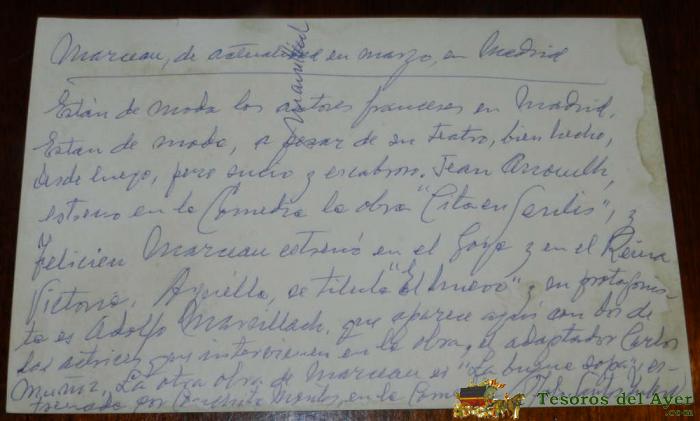 Marceau, de actualidad en marzo, en Madrid
Están de moda los autores franceses en Madrid.
Estan de moda, a pesar de su teatro, bien hecho,
desde luego, pero sucio y escabroso. Jean Anouilh,
estrenó en la Comedia la obra "Cita en Senlis", y
Felicien Marceau estrenó en el Goya y en el Reina
Victoria. Aquélla, se titula "El huevo" y su protagonis-
ta es Adolfo Marsillach, que aparece aquí con dos de
las actrices que intervienen en la obra, el adaptador Carlos
Muñiz. La otra obra de Marceau es "La buena sopa", es-
trenada por Conchita Montes, en la
Tesoros del Ayer
.com